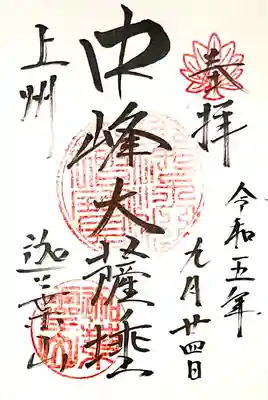 奉拝
令和五年
九月廿四日
中峰大薩埵
上州
迦葉山